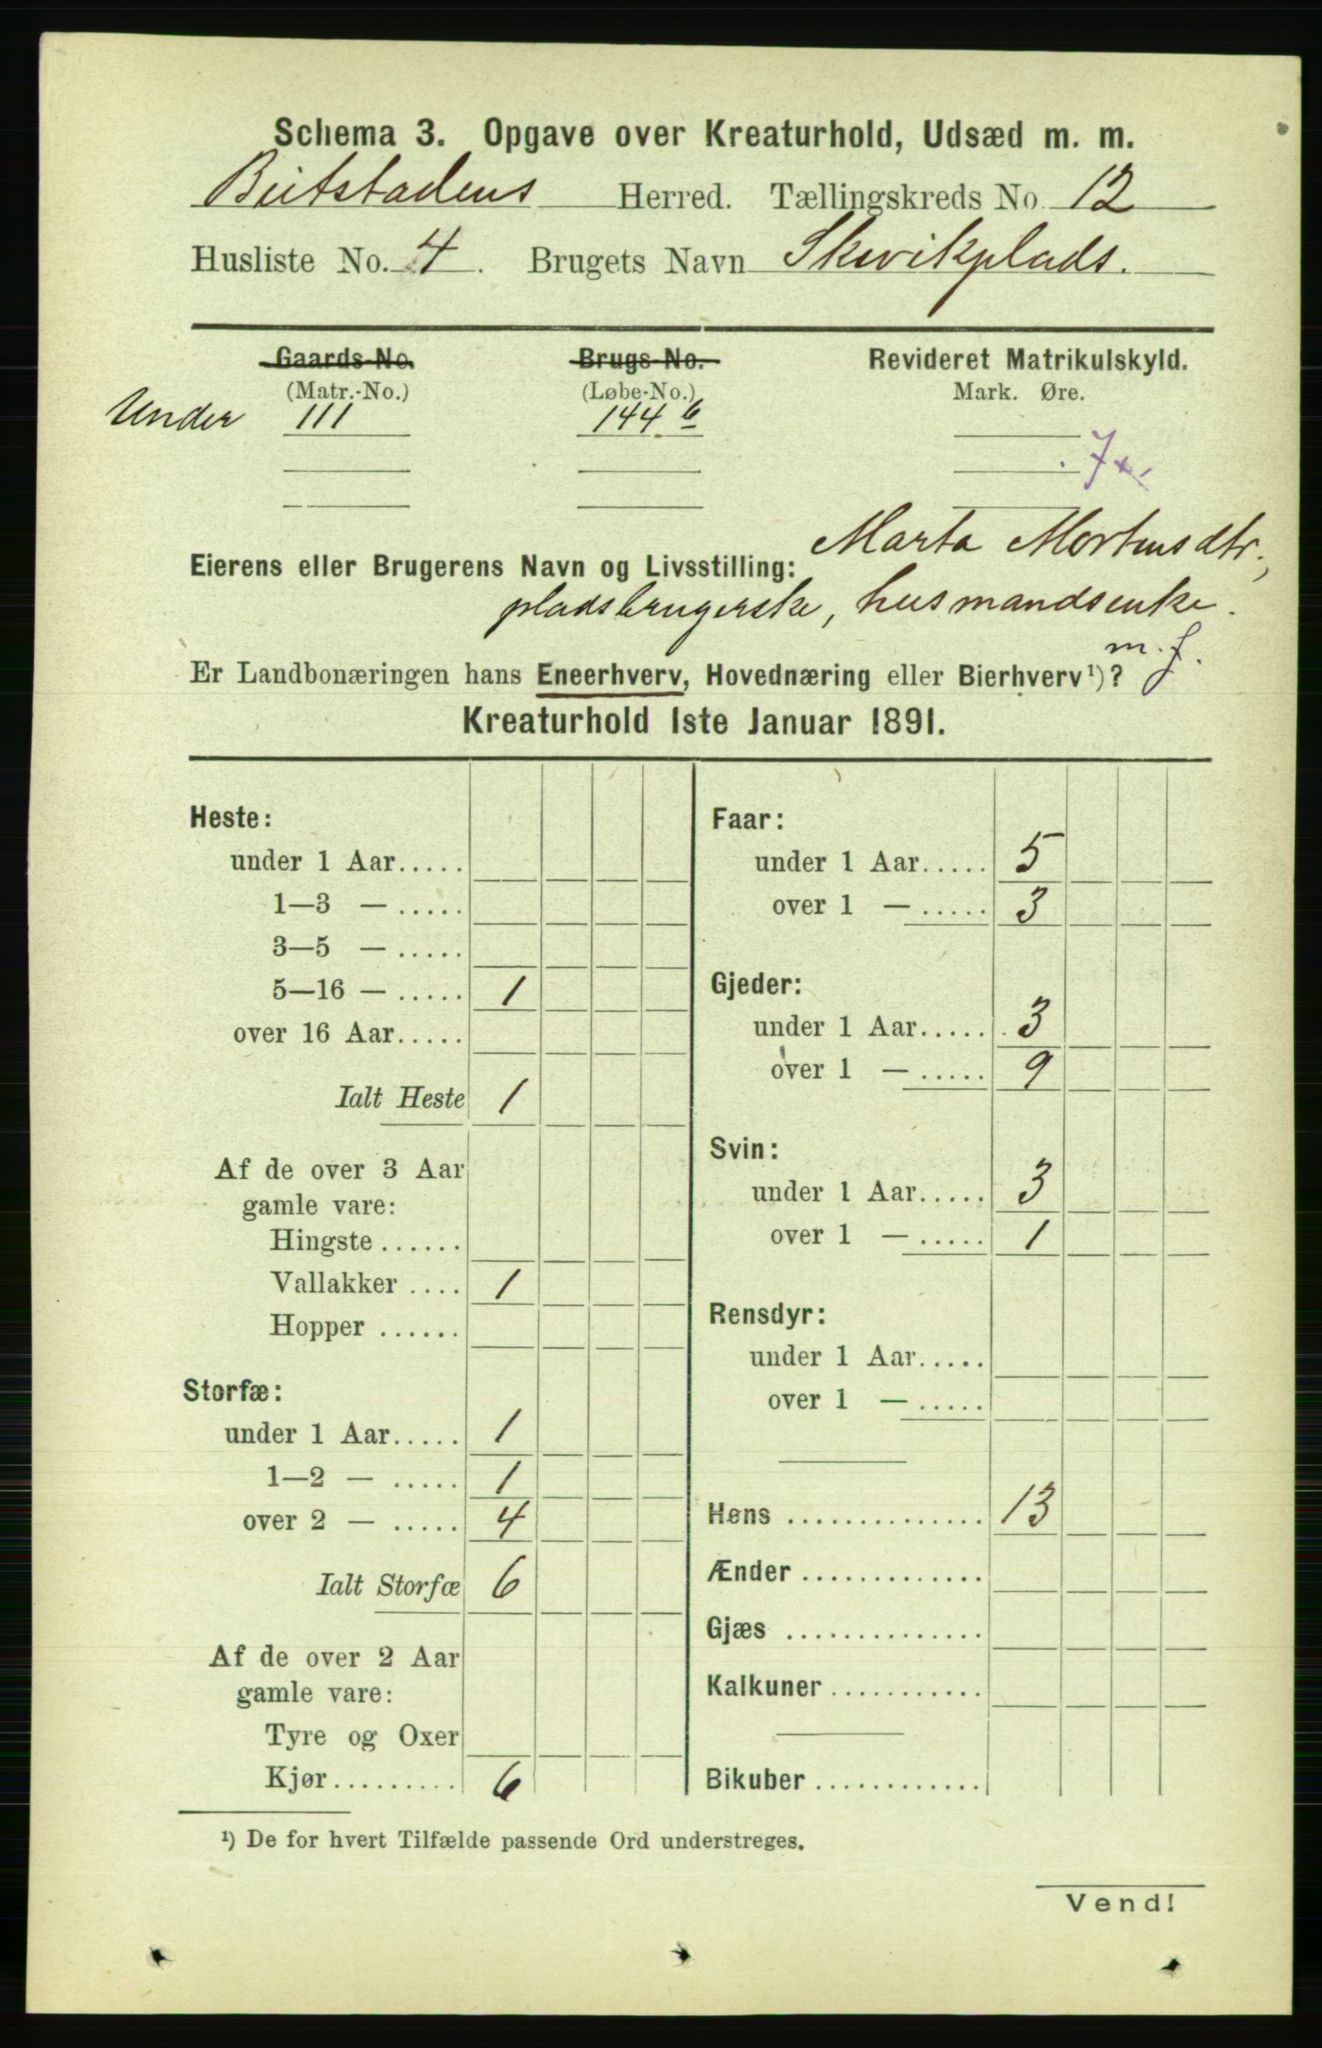 Schema 3. Opgave over Kreaturhold, Udsæd m. m.
Beitstadens Herred. Tællingskreds No. 12
Husliste No. 4. Brugets Navn Skevikplads.
Gaards-No. Brugs-No. Revideret Matrikulskyld.
(Matr.-No.) (Løbe-No.) Mark. Øre.
Under 111 144 b
Eierens eller Brugerens Navn og Livsstilling: Marta Mortensdtr.,
pladsbrugerske, husmandsenke.
m. f.
Er Landbonæringen hans Eneerhverv, Hovednæring eller Bierhverv¹)?
Kreaturhold 1ste Januar 1891.
Heste:
under 1 Aar.....
1—3 — .....
3—5 — .....
5—16 — ..... 1
over 16 Aar.....
Ialt Heste 1
Af de over 3 Aar
gamle vare:
Hingste ......
Vallakker .... 1
Hopper ......
Storfæ:
under 1 Aar..... 1
1—2 — ..... 1
over 2 — ..... 4
Ialt Storfæ 6
Af de over 2 Aar
gamle vare:
Tyre og Oxer
Kjør......... 6
Faar:
under 1 Aar..... 5
over 1 — ..... 3
Gjeder:
under 1 Aar..... 3
over 1 — ..... 9
Svin:
under 1 Aar..... 3
over 1 — ..... 1
Rensdyr:
under 1 Aar.....
over 1 — .....
Høns .............. 13
Ænder .............
Gjæs ..............
Kalkuner ...........
Bikuber ............
¹) De for hvert Tilfælde passende Ord understreges.
Vend!